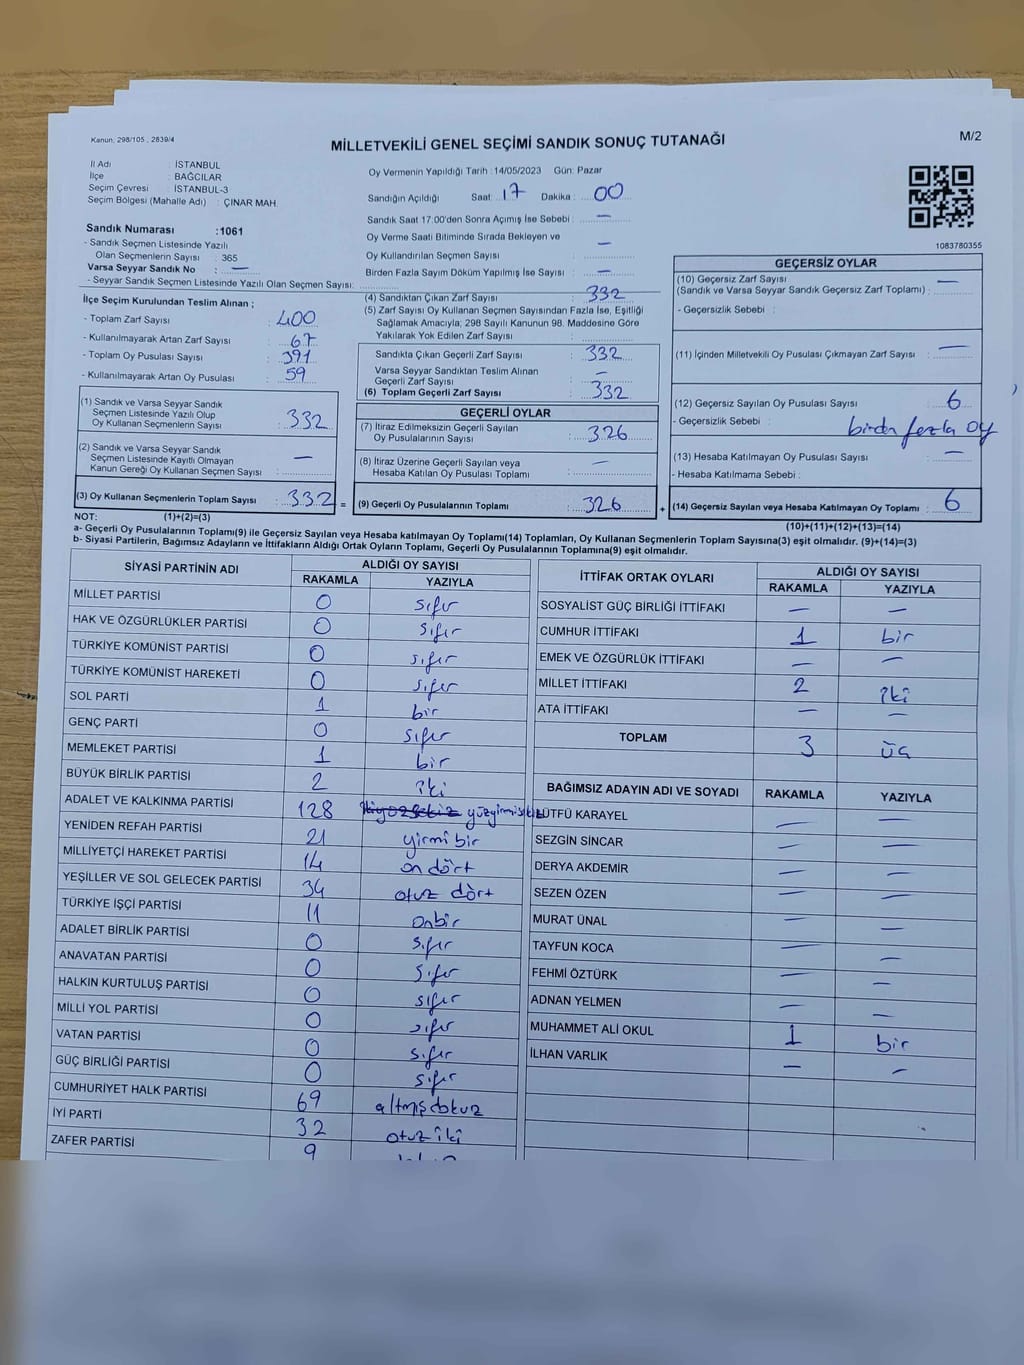 Kanun: 298/105 , 2839/4
MİLLETVEKİLİ GENEL SEÇİMİ SANDIK SONUÇ TUTANAĞI
M/2
İl Adı : İSTANBUL
İlçe : BAĞCILAR
Seçim Çevresi : İSTANBUL-3
Seçim Bölgesi (Mahalle Adı) : ÇINAR MAH.
Oy Vermenin Yapıldığı Tarih : 14/05/2023 Gün: Pazar
Sandığın Açıldığı Saat: 17 Dakika : 00
Sandık Saat 17:00'den Sonra Açımış İse Sebebi : —
Oy Verme Saati Bitiminde Sırada Bekleyen ve
Oy Kullandırılan Seçmen Sayısı : —
Birden Fazla Sayım Döküm Yapılmış İse Sayısı : —
1083780355
Sandık Numarası :1061
- Sandık Seçmen Listesinde Yazılı
Olan Seçmenlerin Sayısı : 365
Varsa Seyyar Sandık No : —
- Seyyar Sandık Seçmen Listesinde Yazılı Olan Seçmen Sayısı:
İlçe Seçim Kurulundan Teslim Alınan ;
- Toplam Zarf Sayısı : 400
- Kullanılmayarak Artan Zarf Sayısı : 67
- Toplam Oy Pusulası Sayısı : 391
- Kullanılmayarak Artan Oy Pusulası : 59
(1) Sandık ve Varsa Seyyar Sandık
Seçmen Listesinde Yazılı Olup
Oy Kullanan Seçmenlerin Sayısı : 332
(2) Sandık ve Varsa Seyyar Sandık
Seçmen Listesinde Kayıtlı Olmayan
Kanun Gereği Oy Kullanan Seçmen Sayısı : —
(3) Oy Kullanan Seçmenlerin Toplam Sayısı : 332 =
(4) Sandıktan Çıkan Zarf Sayısı : 332
(5) Zarf Sayısı Oy Kullanan Seçmen Sayısından Fazla İse, Eşitliği
Sağlamak Amacıyla; 298 Sayılı Kanunun 98. Maddesine Göre
Yakılarak Yok Edilen Zarf Sayısı :
Sandıkta Çıkan Geçerli Zarf Sayısı : 332
Varsa Seyyar Sandıktan Teslim Alınan
Geçerli Zarf Sayısı : —
(6) Toplam Geçerli Zarf Sayısı : 332
GEÇERLİ OYLAR
(7) İtiraz Edilmeksizin Geçerli Sayılan
Oy Pusulalarının Sayısı : 326
(8) İtiraz Üzerine Geçerli Sayılan veya
Hesaba Katılan Oy Pusulası Toplamı : —
(9) Geçerli Oy Pusulalarının Toplamı : 326 +
GEÇERSİZ OYLAR
(10) Geçersiz Zarf Sayısı
(Sandık ve Varsa Seyyar Sandık Geçersiz Zarf Toplamı) : —
- Geçersizlik Sebebi :
(11) İçinden Milletvekili Oy Pusulası Çıkmayan Zarf Sayısı : —
(12) Geçersiz Sayılan Oy Pusulası Sayısı : 6
- Geçersizlik Sebebi : birden fazla oy
(13) Hesaba Katılmayan Oy Pusulası Sayısı : —
- Hesaba Katılmama Sebebi :
(14) Geçersiz Sayılan veya Hesaba Katılmayan Oy Toplamı : 6
NOT: (1)+(2)=(3)
(10)+(11)+(12)+(13)=(14)
a- Geçerli Oy Pusulalarının Toplamı(9) ile Geçersiz Sayılan veya Hesaba katılmayan Oy Toplamı(14) Toplamları, Oy Kullanan Seçmenlerin Toplam Sayısına(3) eşit olmalıdır. (9)+(14)=(3)
b- Siyasi Partilerin, Bağımsız Adayların ve İttifakların Aldığı Ortak Oyların Toplamı, Geçerli Oy Pusulalarının Toplamına(9) eşit olmalıdır.
SİYASİ PARTİNİN ADI ALDIĞI OY SAYISI
RAKAMLA YAZIYLA
MİLLET PARTİSİ 0 sıfır
HAK VE ÖZGÜRLÜKLER PARTİSİ 0 sıfır
TÜRKİYE KOMÜNİST PARTİSİ 0 sıfır
TÜRKİYE KOMÜNİST HAREKETİ 0 sıfır
SOL PARTİ 1 bir
GENÇ PARTİ 0 sıfır
MEMLEKET PARTİSİ 1 bir
BÜYÜK BİRLİK PARTİSİ 2 iki
ADALET VE KALKINMA PARTİSİ 128 yüzyirmisekiz
YENİDEN REFAH PARTİSİ 21 yirmi bir
MİLLİYETÇİ HAREKET PARTİSİ 14 on dört
YEŞİLLER VE SOL GELECEK PARTİSİ 34 otuz dört
TÜRKİYE İŞÇİ PARTİSİ 11 onbir
ADALET BİRLİK PARTİSİ 0 sıfır
ANAVATAN PARTİSİ 0 sıfır
HALKIN KURTULUŞ PARTİSİ 0 sıfır
MİLLİ YOL PARTİSİ 0 sıfır
VATAN PARTİSİ 0 sıfır
GÜÇ BİRLİĞİ PARTİSİ 0 sıfır
CUMHURİYET HALK PARTİSİ 69 altmışdokuz
İYİ PARTİ 32 otuz iki
ZAFER PARTİSİ 9
İTTİFAK ORTAK OYLARI ALDIĞI OY SAYISI
RAKAMLA YAZIYLA
SOSYALİST GÜÇ BİRLİĞİ İTTİFAKI — —
CUMHUR İTTİFAKI 1 bir
EMEK VE ÖZGÜRLÜK İTTİFAKI — —
MİLLET İTTİFAKI 2 iki
ATA İTTİFAKI — —
TOPLAM 3 üç
BAĞIMSIZ ADAYIN ADI VE SOYADI RAKAMLA YAZIYLA
LÜTFÜ KARAYEL — —
SEZGİN SİNCAR — —
DERYA AKDEMİR — —
SEZEN ÖZEN — —
MURAT ÜNAL — —
TAYFUN KOCA — —
FEHMİ ÖZTÜRK — —
ADNAN YELMEN — —
MUHAMMET ALİ OKUL 1 bir
İLHAN VARLIK — —